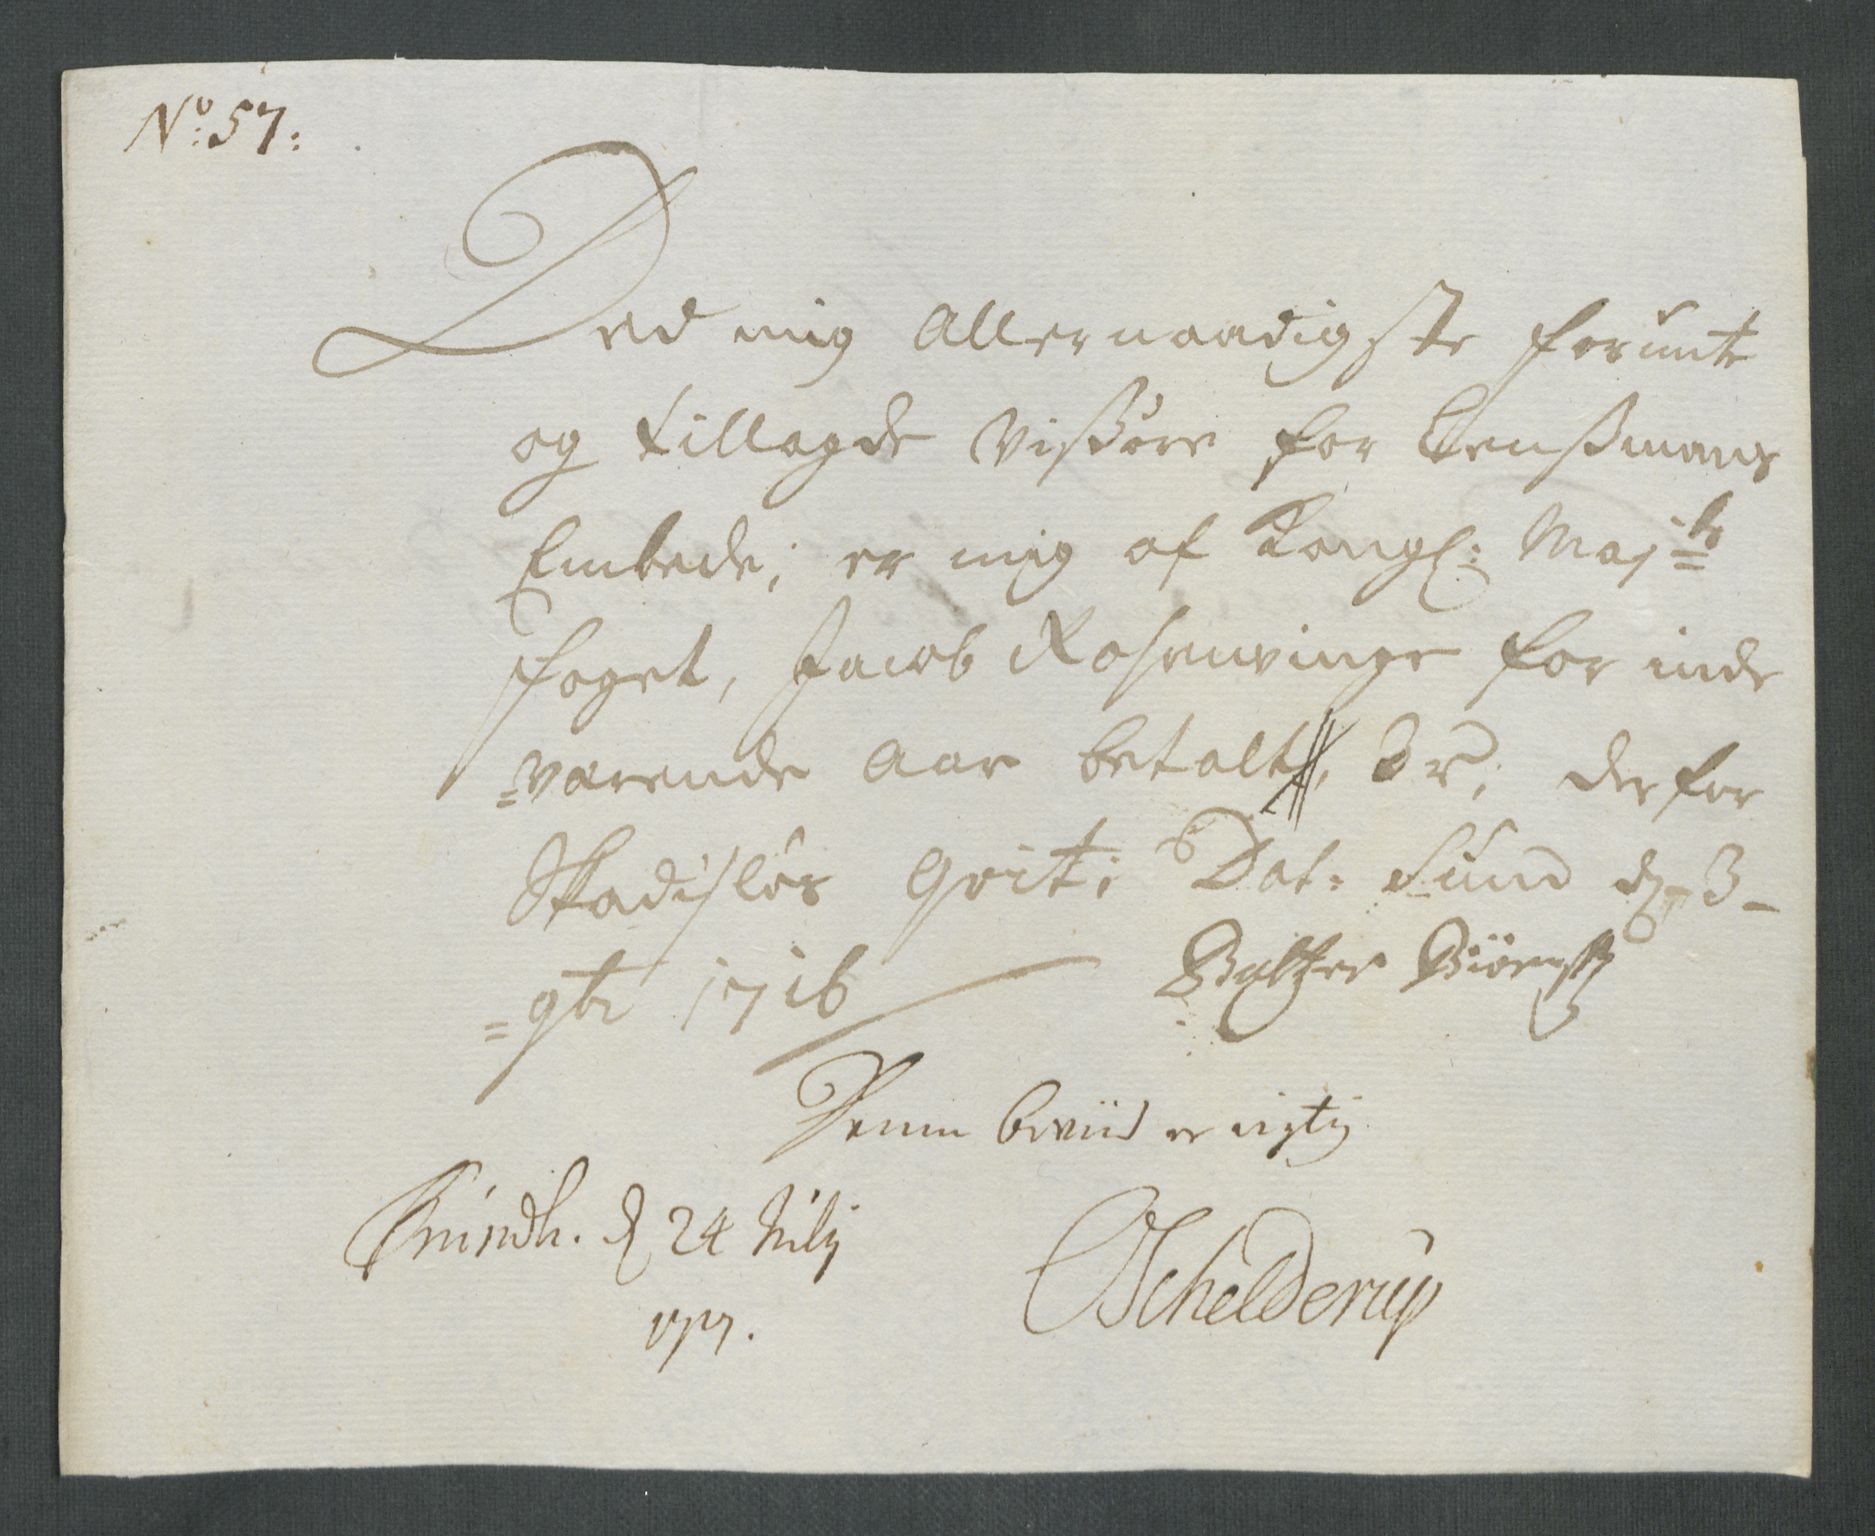 No: 57:
Ded mig Allernaadigste forunte
og tillagde Vissøre for Lensmans
Embede; er mig af Kongl: Majts
foget, Jacob Rosenvinge for inde
=værende Aar betalt, 3 r; derfor
Skadisløs qvit; Dat: Lund d. 3-
=9br 1716
Baltzer Biørnss
Denne beviis er rigtig
Trundh. d 24 Julij
1717.
OSchelderup